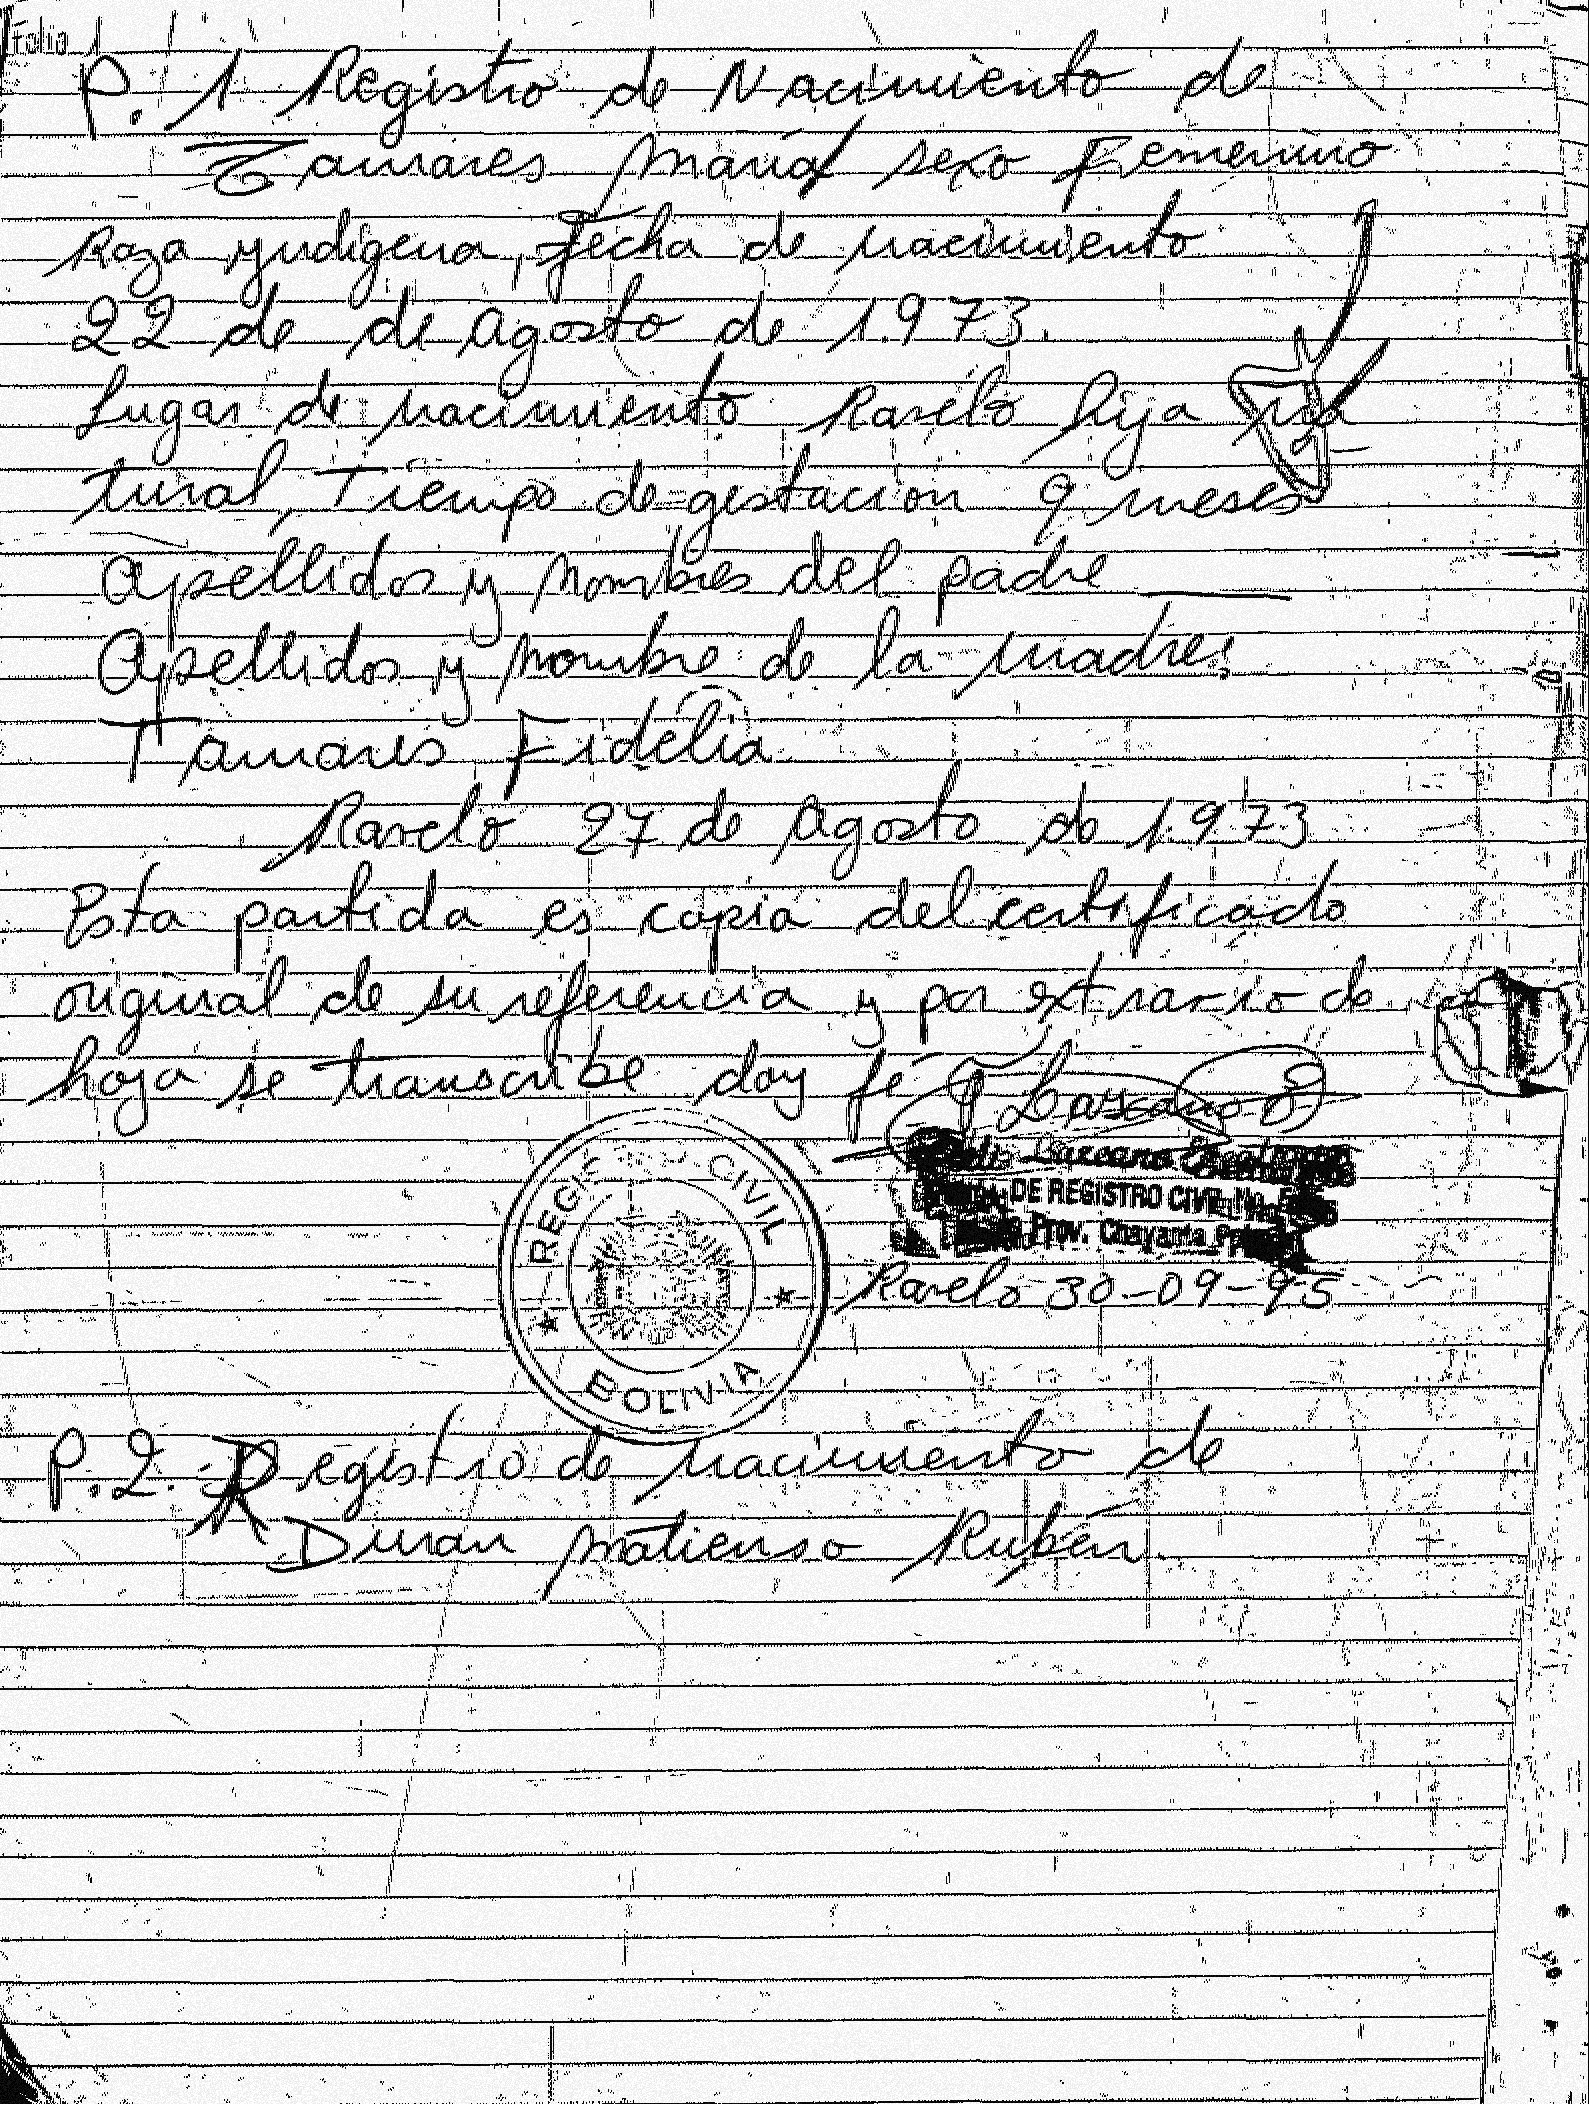 Folio 1
P. 1 Registro de Nacimiento de
Tamares María sexo Femenino
Raza yndígena, fecha de nacimiento
22 de de Agosto de 1.973.
Lugar de nacimiento Ravelo hija na
tural, Tiempo de gestacion 9 meses
Apellidos y Nombres del padre ———
Apellidos y Nombre de la madre:
Tamares Fidelia
Ravelo 27 de Agosto de 1.973
Esta partida es copia del certificado
original de su referencia y por extravio de
hoja se transcribe doy fé
REGISTRO CIVIL
BOLIVIA
DE REGISTRO CIVIL No.
Prov. Chayanta
Ravelo 30-09-95
P. 2. Registro de nacimiento de
Duran Matienso Rubén.